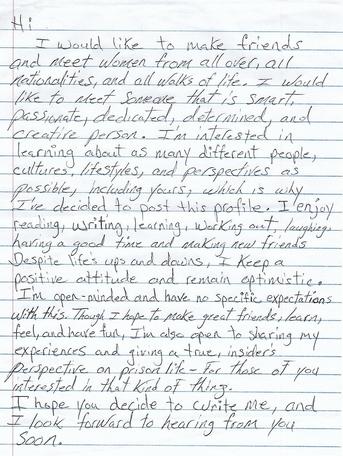 Hi
I would like to make friends
and meet women from all over, all
nationalities, and all walks of life. I would
like to meet someone that is smart,
passionate, dedicated, determined, and
creative person. I'm interested in
learning about as many different people,
cultures, lifestyles, and perspectives as
possible, including yours, which is why
I've decided to post this profile. I enjoy
reading, writing, learning, working out, laughing,
having a good time and making new friends
Despite life's ups and downs, I keep a
positive attitude and remain optimistic.
I'm open-minded and have no specific expectations
with this. Though I hope to make great friends, learn,
feel, and have fun, I'm also open to sharing my
experiences and giving a true, insider's
perspective on prison life - for those of you
interested in that kind of thing.
I hope you decide to write me, and
I look forward to hearing from you
soon.